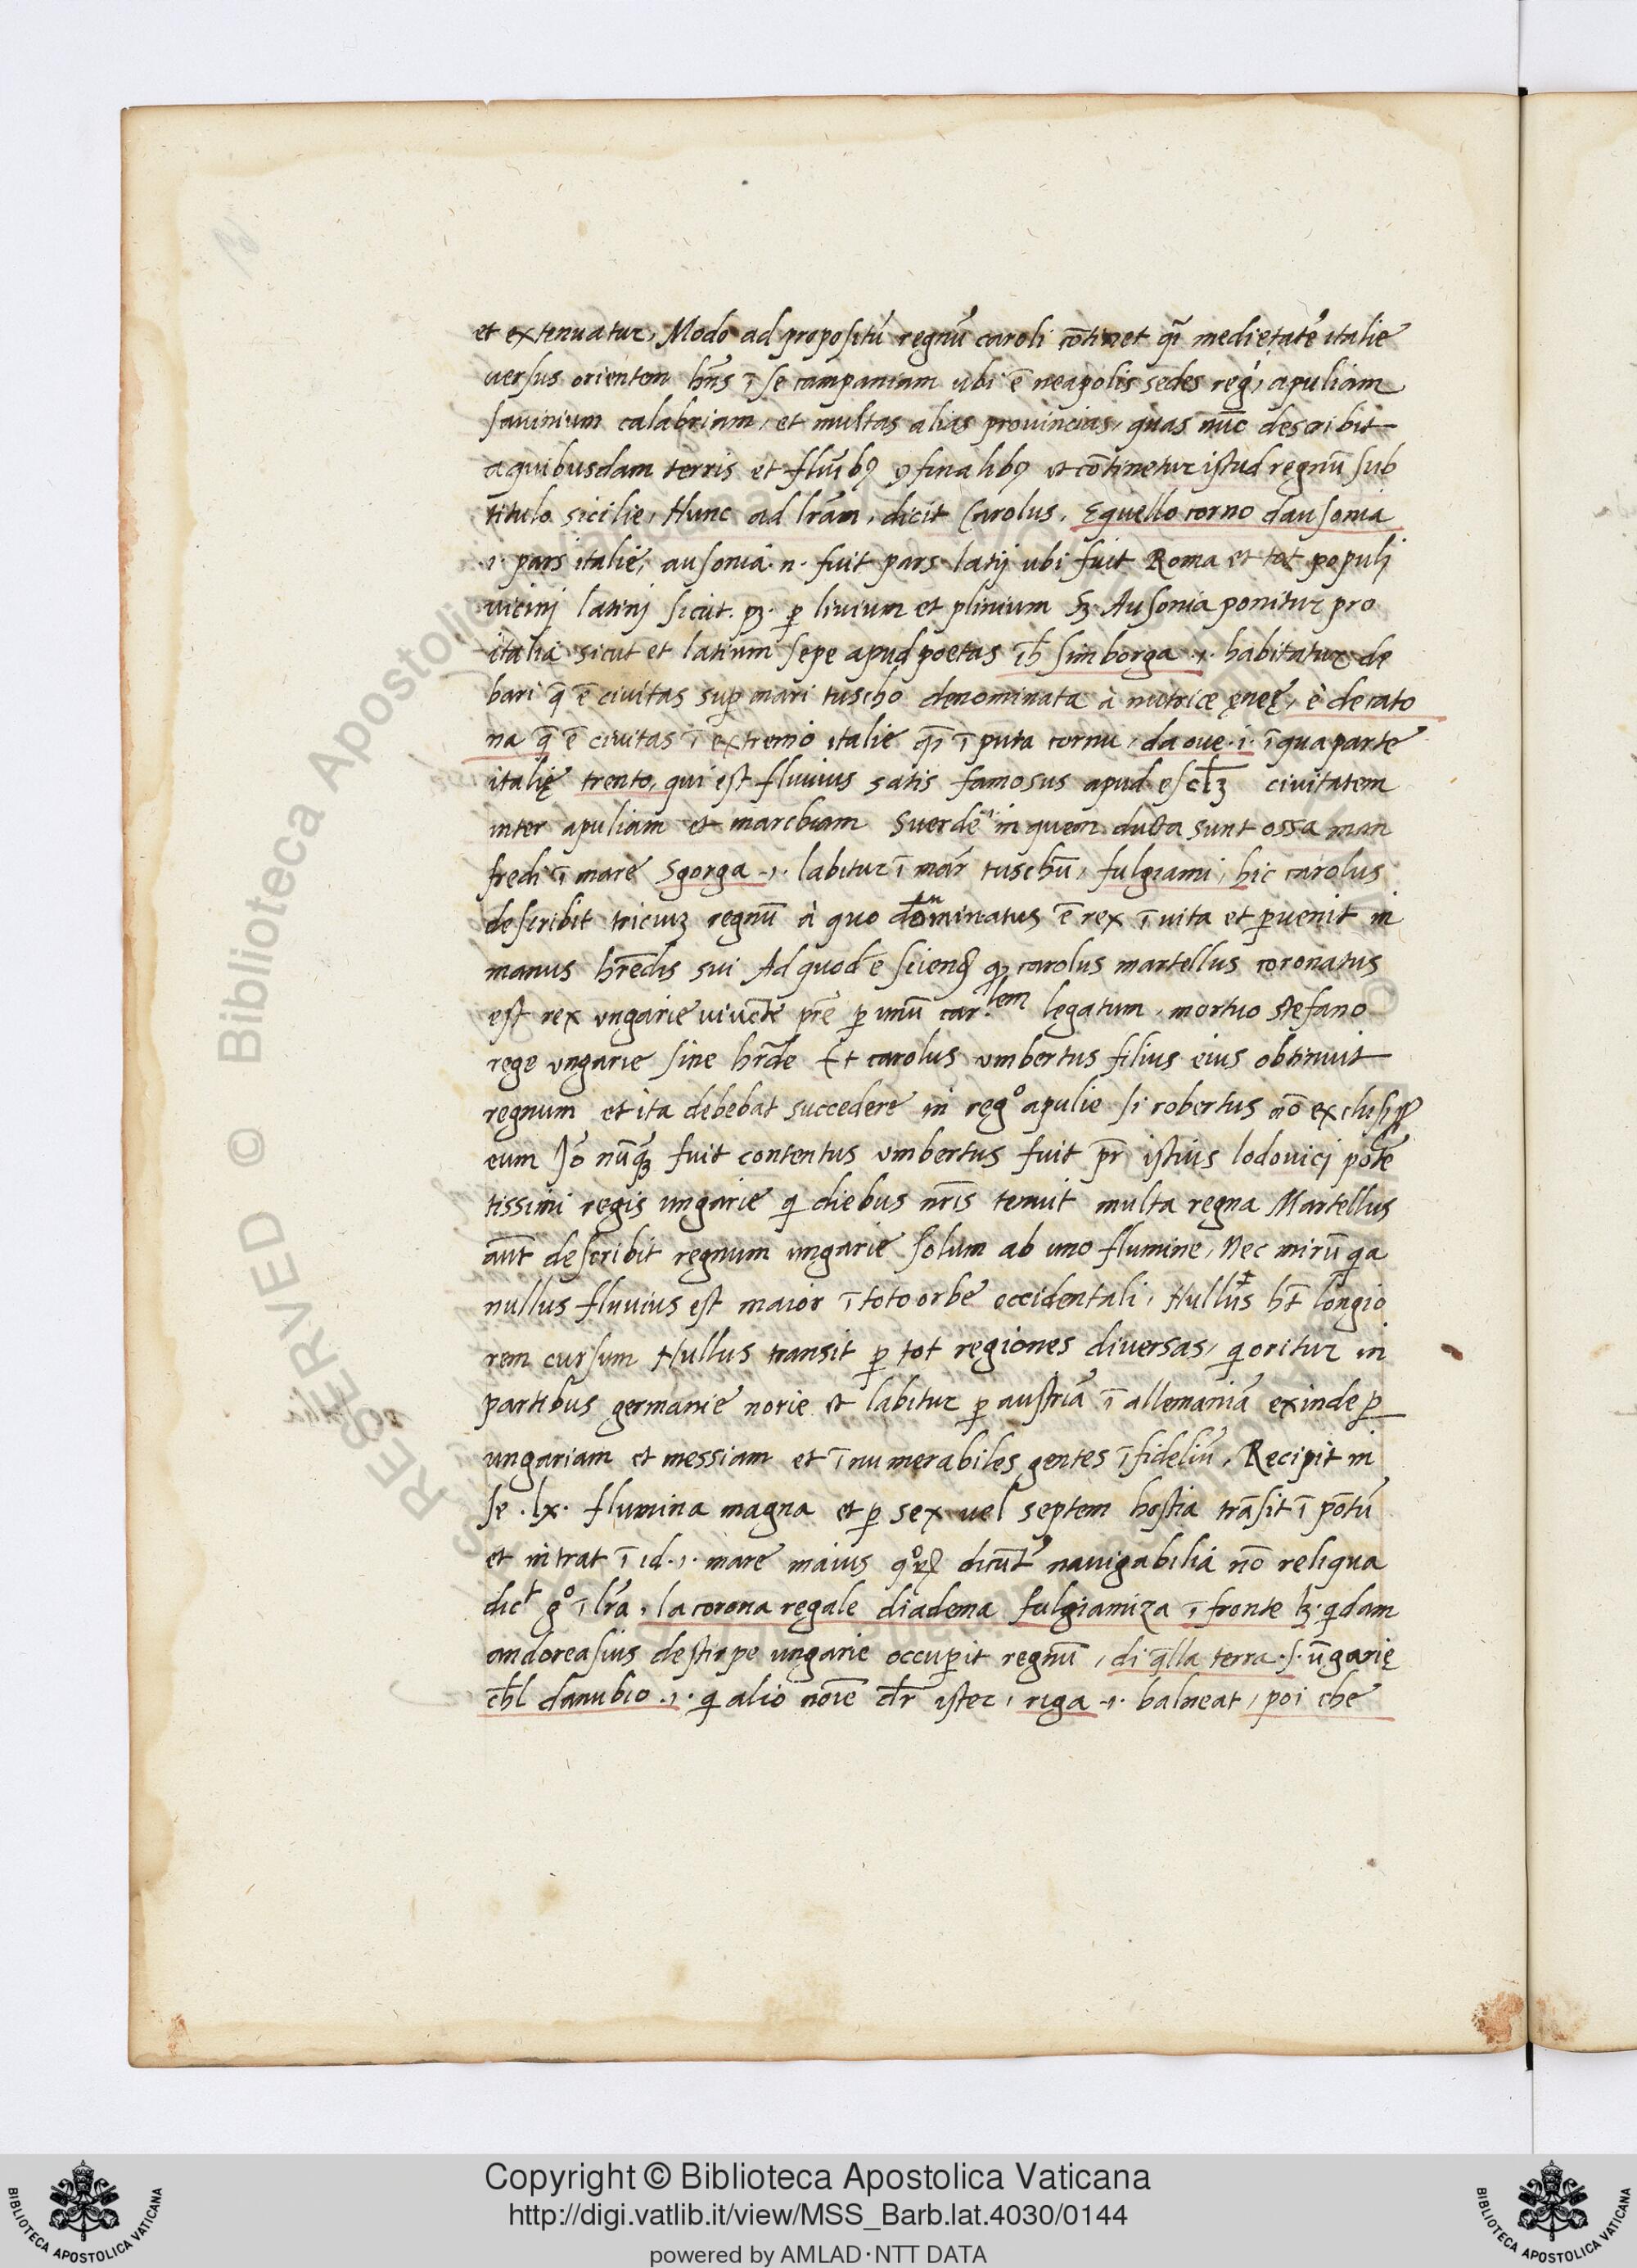 et extenuatur, Modo ad propositū regnū caroli cōtinet qī medietatē italie
uersus orientem hn̄s ī se campaniam ubi ē neapolis sedes reg̃, apuliam
savinium calabriam, et multas alias provincias, quas nūc describit
a quibusdam terris et fluībꝫ ꝯfinalibꝫ ut cōtinetur istud regnū sub
titulo sicilie, Hunc ad lrām, dicit Carolus. Equello corno dausonia
.ı. pars italie, ausonia .n. fuit pars latij ubi fuit Roma et tot populi
uicinj latinj sicut .pꝫ. ꝑ livium et plinium sꝫ. Ausonia ponitur pro
italia sicut et latium sepe apud poetas ch̄ simborga .ı. habitatur de
bari q̄ ē civitas suꝑ mari tuscho denominata à nutrice ęneę, è de cato
na q̄ ē civitas ī extremo italie qī ī puta cornu, da oue .i. ī qua parte
italię trento, qui est fluvius satis famosus apud escl̄ꝫ civitatem
inter apuliam et marchiam Suerde in quem ducta sunt ossa man
fredi ī mare Sgorga .ı. labitur ī mar̃ tuschū, fulgiami, hic carolus
describit regnū à quo dominatus ē rex ī vita et ꝑuenit in
manus hrēdis sui Ad quod ē sciend ꝙ carolus martellus coronatus
est rex ungarie prē ꝑ unū car.lem legatum, mortuo stefano
rege ungarie sine hrd̄e Et carolus umbertus filius eius obtinuit
regnum et ita debebat succedere in reg° apulie si robertus nō
eum Jō nūqꝫ fuit contentus umbertus fuit pr̄ istius lodovici potē
tissimi regis ungarie q diebus nrīs tenuit multa regna Martellus
aūt describit regnum ungarie solum ab uno flumine, Nec mirū qa
nullus fluvius est maior ī toto orbe occidentali, Nullus ht̄ longio
rem cursum Nullus transit ꝑ tot regiones diversas, q oritur in
partibus germanie norie et labitur ꝑ austriā ī allemaniā exinde ꝑ
ungariam et messiam et īnumerabiles gentes īfideliū, Recipit in
se .lx. flumina magna et ꝑ sex uel septem hostia trāsit ī pōtū
et intrat ī id .ı. mare maius dicūt navigabilia nō reliqua
dict̄ g° ī lrā, la corona regale diadema fulgiamiza ī fronte qdam
andoreasius destirpe ungarie occuꝑit regnū, di q̄lla terra .s. ūngarię
ch̄l danubio .ı. q alio noīe dr̄ ister, riga .ı. balneat, poi che
Copyright © Biblioteca Apostolica Vaticana
http://digi.vatlib.it/view/MSS_Barb.lat.4030/0144
powered by AMLAD·NTT DATA
BIBLIOTECA APOSTOLICA VATICANA
BIBLIOTECA APOSTOLICA VATICANA